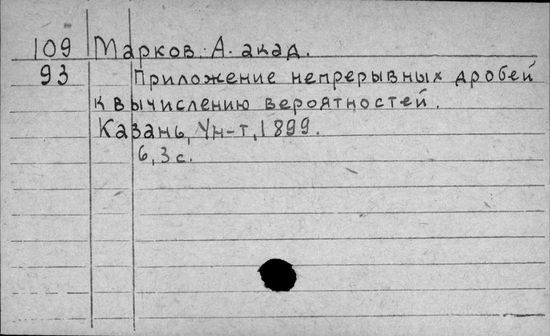 109 Марков. А. акад.
93 Приложение непрерывных дробей
к вычислению вероятностей.
Казань, Ун-т, 1899.
6,3 с.